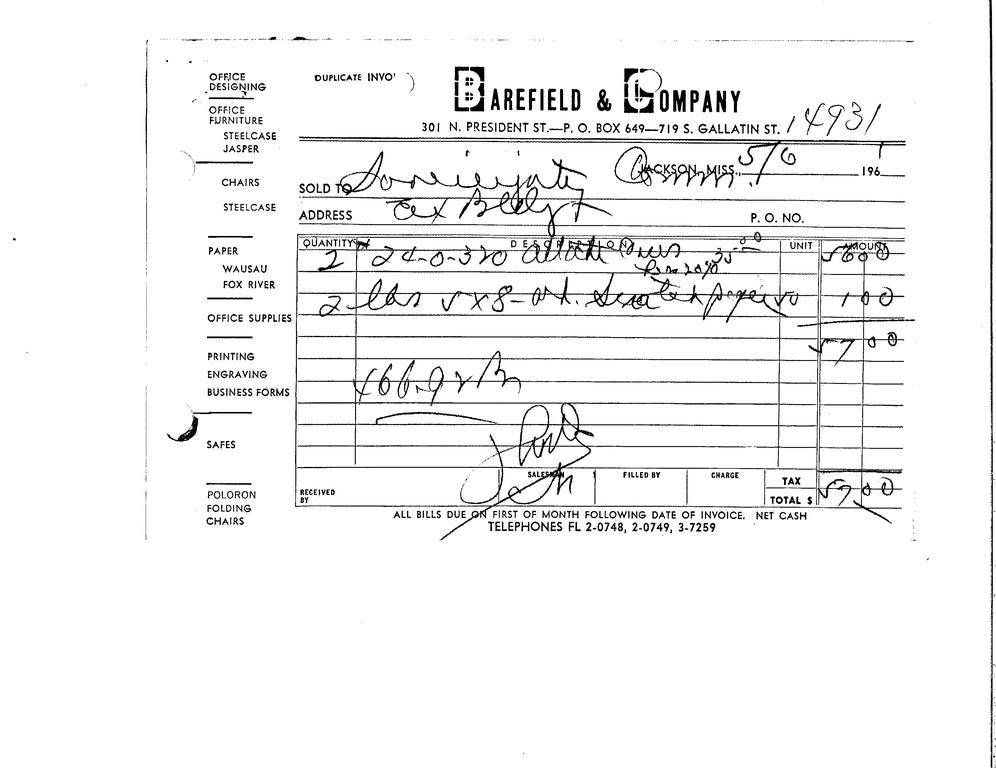 OFFICE
DESIGNING
OFFICE
FURNITURE
STEELCASE
JASPER
CHAIRS
STEELCASE
PAPER
WAUSAU
FOX RIVER
OFFICE SUPPLIES
PRINTING
ENGRAVING
BUSINESS FORMS
SAFES
POLORON
FOLDING
CHAIRS
DUPLICATE INVO'
BAREFIELD & COMPANY
301 N. PRESIDENT ST.—P. O. BOX 649—719 S. GALLATIN ST.
14931
JACKSON, MISS., 5/6 196
SOLD TO Sovereignty Comm.
ADDRESS P. O. NO.
QUANTITY DESCRIPTION UNIT AMOUNT
2 24-0-320 Attache Cases 35.00 56 00
Less 20%
2 5x8 50 1 00
57 00
SALESMAN FILLED BY CHARGE TAX
RECEIVED
BY
TOTAL $ 57 00
ALL BILLS DUE ON FIRST OF MONTH FOLLOWING DATE OF INVOICE. NET CASH
TELEPHONES FL 2-0748, 2-0749, 3-7259